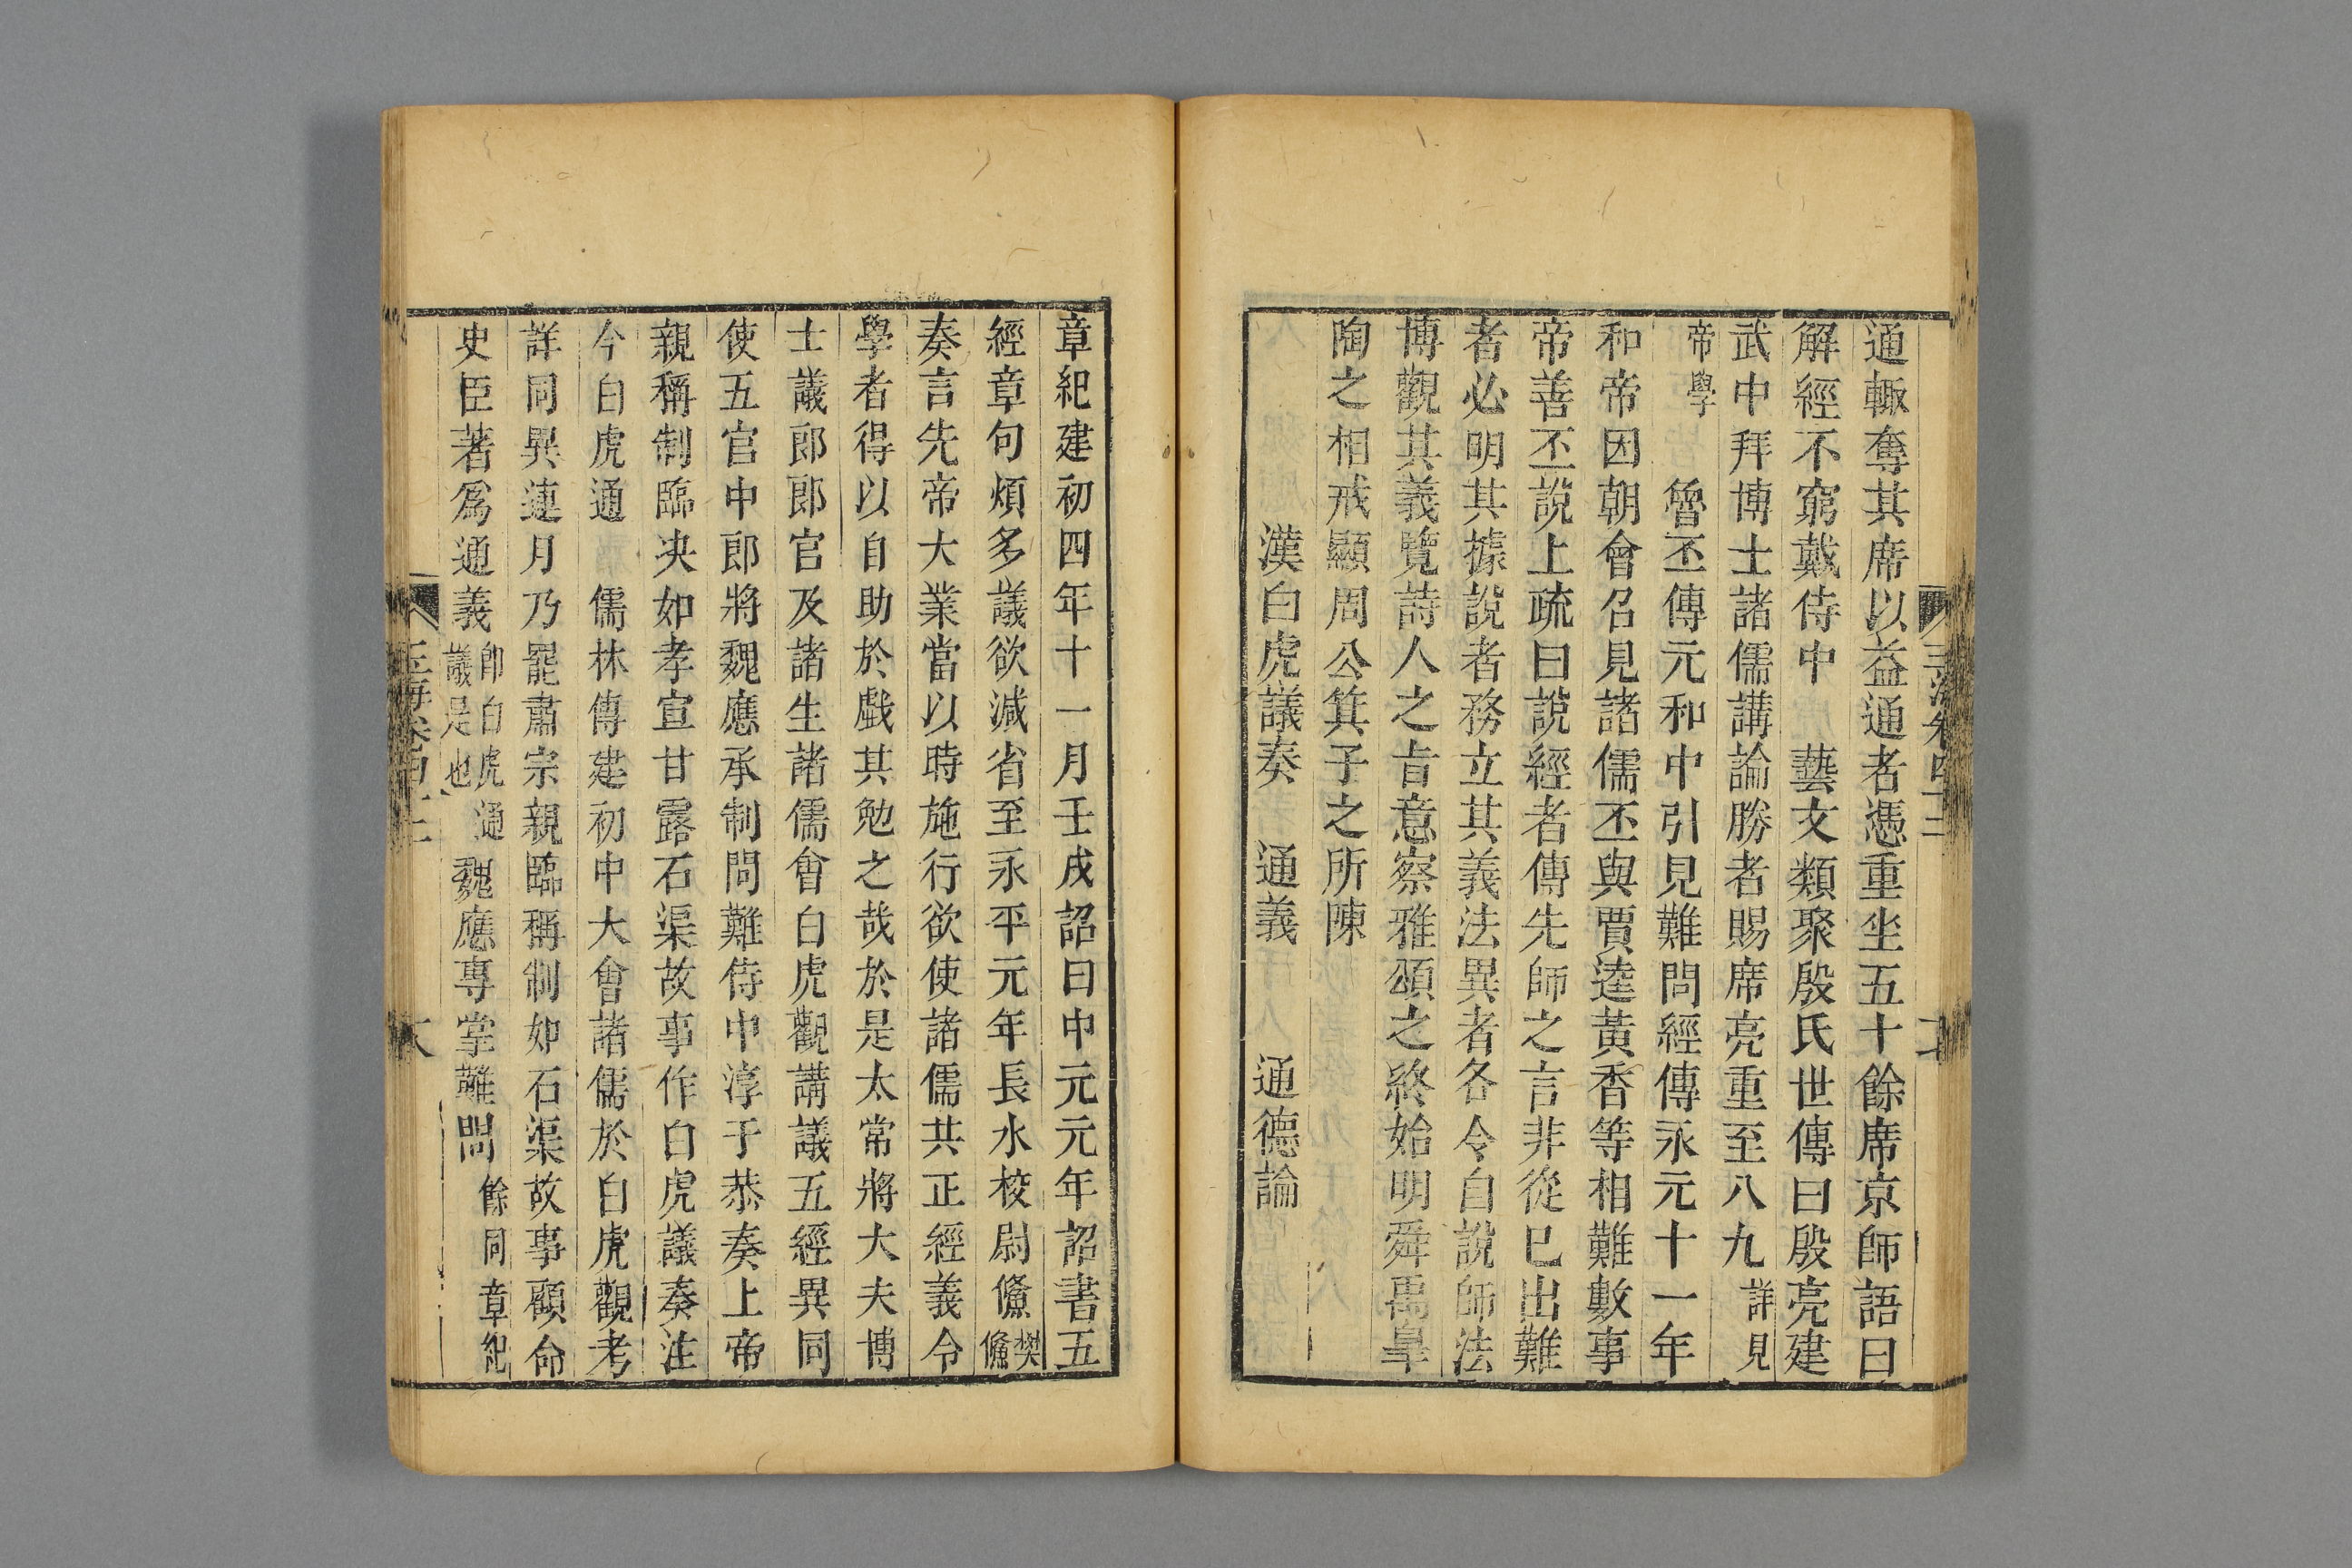 通輙奪其席以益通者憑重坐五十餘席京師語曰
解經不窮戴侍中　藝文類聚殷氏世傳曰殷亮建
武中拜博士諸儒講論勝者賜席亮重至八九詳見
帝學　魯丕傳元和中引見難問經傳永元十一年
和帝因朝會召見諸儒丕與賈逵黃香等相難數事
帝善丕說上疏曰說經者傳先師之言非從已出難
者必明其據說者務立其義法異者各令自說師法
博觀其義覽詩人之旨意察雅頌之終始明舜禹皐
陶之相戒顯周公箕子之所陳
漢白虎議奏　通義　通德論
章紀建初四年十一月壬戌詔曰中元元年詔書五
經章句煩多議欲減省至永平元年長水校尉儵樊儵
奏言先帝大業當以時施行欲使諸儒共正經義令
學者得以自助於戲其勉之哉於是太常將大夫博
士議郎郎官及諸生諸儒會白虎觀講議五經異同
使五官中郎將魏應承制問難侍中淳于恭奏上帝
親稱制臨决如孝宣甘露石渠故事作白虎議奏注
今白虎通　儒林傳建初中大會諸儒於白虎觀考
詳同異連月乃罷肅宗親臨稱制如石渠故事顧命
史臣著爲通義即白虎通議是也　魏應專掌難問餘同章紀